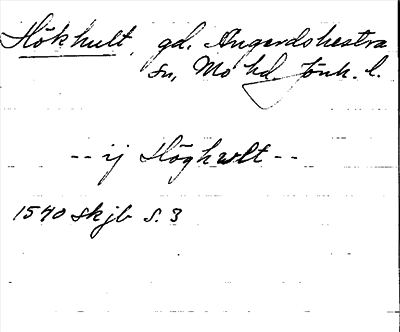 Hökhult, gd. Angerdshestra
sn, Mo hd. Jönk. l.
-- ij Höghwlt --
1540 skjb s. 3